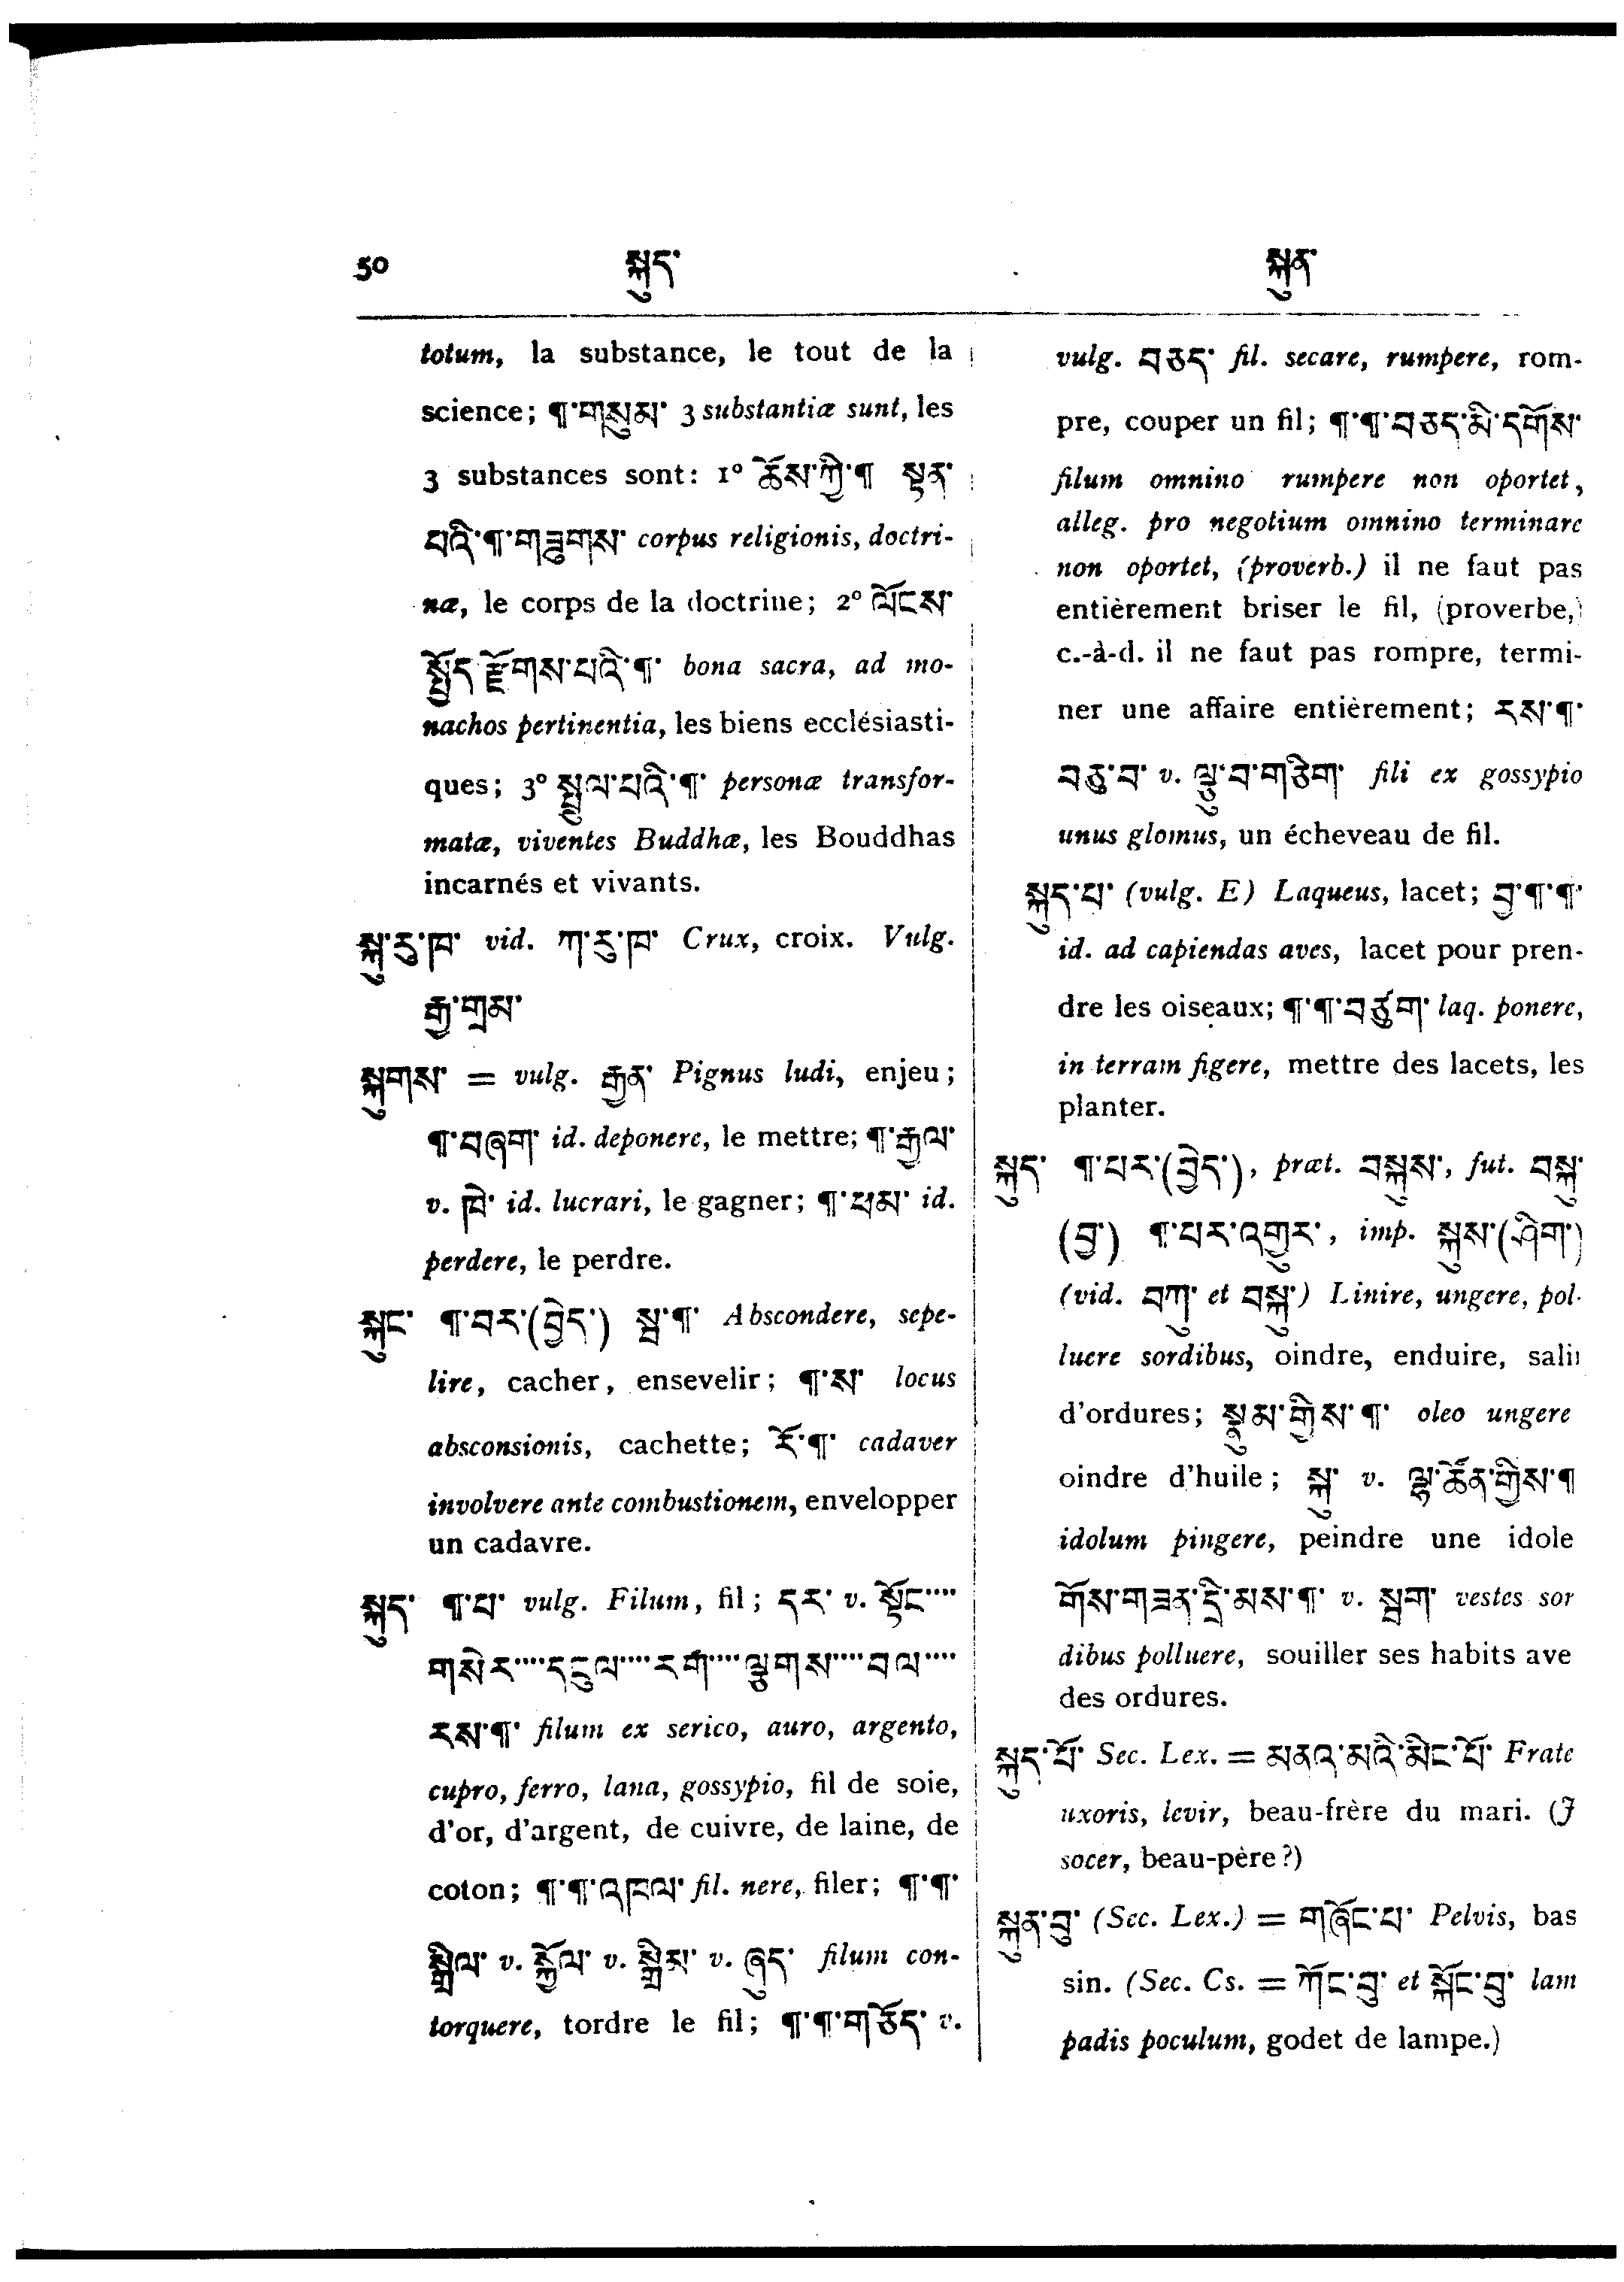 50 སྐུད་ སྐུན་
totum, la substance, le tout de la
science; ¶་གསུམ་ 3 substantiæ sunt, les
3 substances sont: 1° ཆོས་ཀྱི་¶ སྟན་
པའི་¶་གཟུགས་ corpus religionis, doctri-
næ, le corps de la doctrine; 2° ལོངས་
སྤྱོད་རྫོགས་པའི་¶་ bona sacra, ad mo-
nachos pertinentia, les biens ecclésiasti-
ques; 3° སྤྲུལ་པའི་¶་ personæ transfor-
matæ, viventes Buddhæ, les Bouddhas
incarnés et vivants.
སྐུ་རུ་ཁ་ vid. ཀ་རུ་ཁ་ Crux, croix. Vulg.
རྒྱ་གྲམ་
སྐུགས་ = vulg. རྒྱན་ Pignus ludi, enjeu;
¶་བཞག་ id. deponere, le mettre; ¶་རྒྱལ་
v. ཁེ་ id. lucrari, le gagner; ¶་ཕམ་ id.
perdere, le perdre.
སྐུང་ ¶་བར་(བྱེད་) སྦ་¶་ Abscondere, sepe-
lire, cacher, ensevelir; ¶་ས་ locus
absconsionis, cachette; རོ་¶་ cadaver
involvere ante combustionem, envelopper
un cadavre.
སྐུད་ ¶་པ་ vulg. Filum, fil; དར་ v. སྟོང་····
གསེར་····དངུལ་····རག་····ལྕགས་····བལ་····
རས་¶་ filum ex serico, auro, argento,
cupro, ferro, lana, gossypio, fil de soie,
d'or, d'argent, de cuivre, de laine, de
coton; ¶་¶་འཁལ་ fil. nere, filer; ¶་¶་
སྒྲིལ་ v. སྐྱོལ་ v. སྒྲིམ་ v. ཞུད་ filum con-
torquere, tordre le fil; ¶་¶་གཅོད་ v.
vulg. བཅད་ fil. secare, rumpere, rom-
pre, couper un fil; ¶་¶་བཅད་མི་དགོས་
filum omnino rumpere non oportet,
alleg. pro negotium omnino terminare
non oportet, (proverb.) il ne faut pas
entièrement briser le fil, (proverbe,)
c.-à-d. il ne faut pas rompre, termi-
ner une affaire entièrement; རས་¶་
བཅུ་བ་ v. ལྡུ་བ་གཅིག་ fili ex gossypio
unus glomus, un écheveau de fil.
སྐུད་པ་ (vulg. E) Laqueus, lacet; བྱ་¶་¶་
id. ad capiendas aves, lacet pour pren-
dre les oiseaux; ¶་¶་བཙུག་ laq. ponere,
in terram figere, mettre des lacets, les
planter.
སྐུད་ ¶་པར་(བྱེད་), præt. བསྐུས་, fut. བསྐུ་
(བྱ་) ¶་པར་འགྱུར་, imp. སྐུས་(ཤིག་)
(vid. བཀུ་ et བསྐུ་) Linire, ungere, pol-
luere sordibus, oindre, enduire, sali
d'ordures; སྣུམ་གྱིས་¶་ oleo ungere
oindre d'huile; སྐུ་ v. ལྷ་ཚོན་གྱིས་¶
idolum pingere, peindre une idole
གོས་གཟན་དྲི་མས་¶་ v. སྦག་ vestes sor
dibus polluere, souiller ses habits ave
des ordures.
སྐུད་པོ་ Sec. Lex. = མནའ་མའི་མིང་པོ་ Frate
uxoris, levir, beau-frère du mari. (J
socer, beau-père?)
སྐུན་བུ་ (Sec. Lex.) = གཞོང་པ་ Pelvis, bas
sin. (Sec. Cs. = ཀོང་བུ་ et སྐོང་བུ་ lam
padis poculum, godet de lampe.)